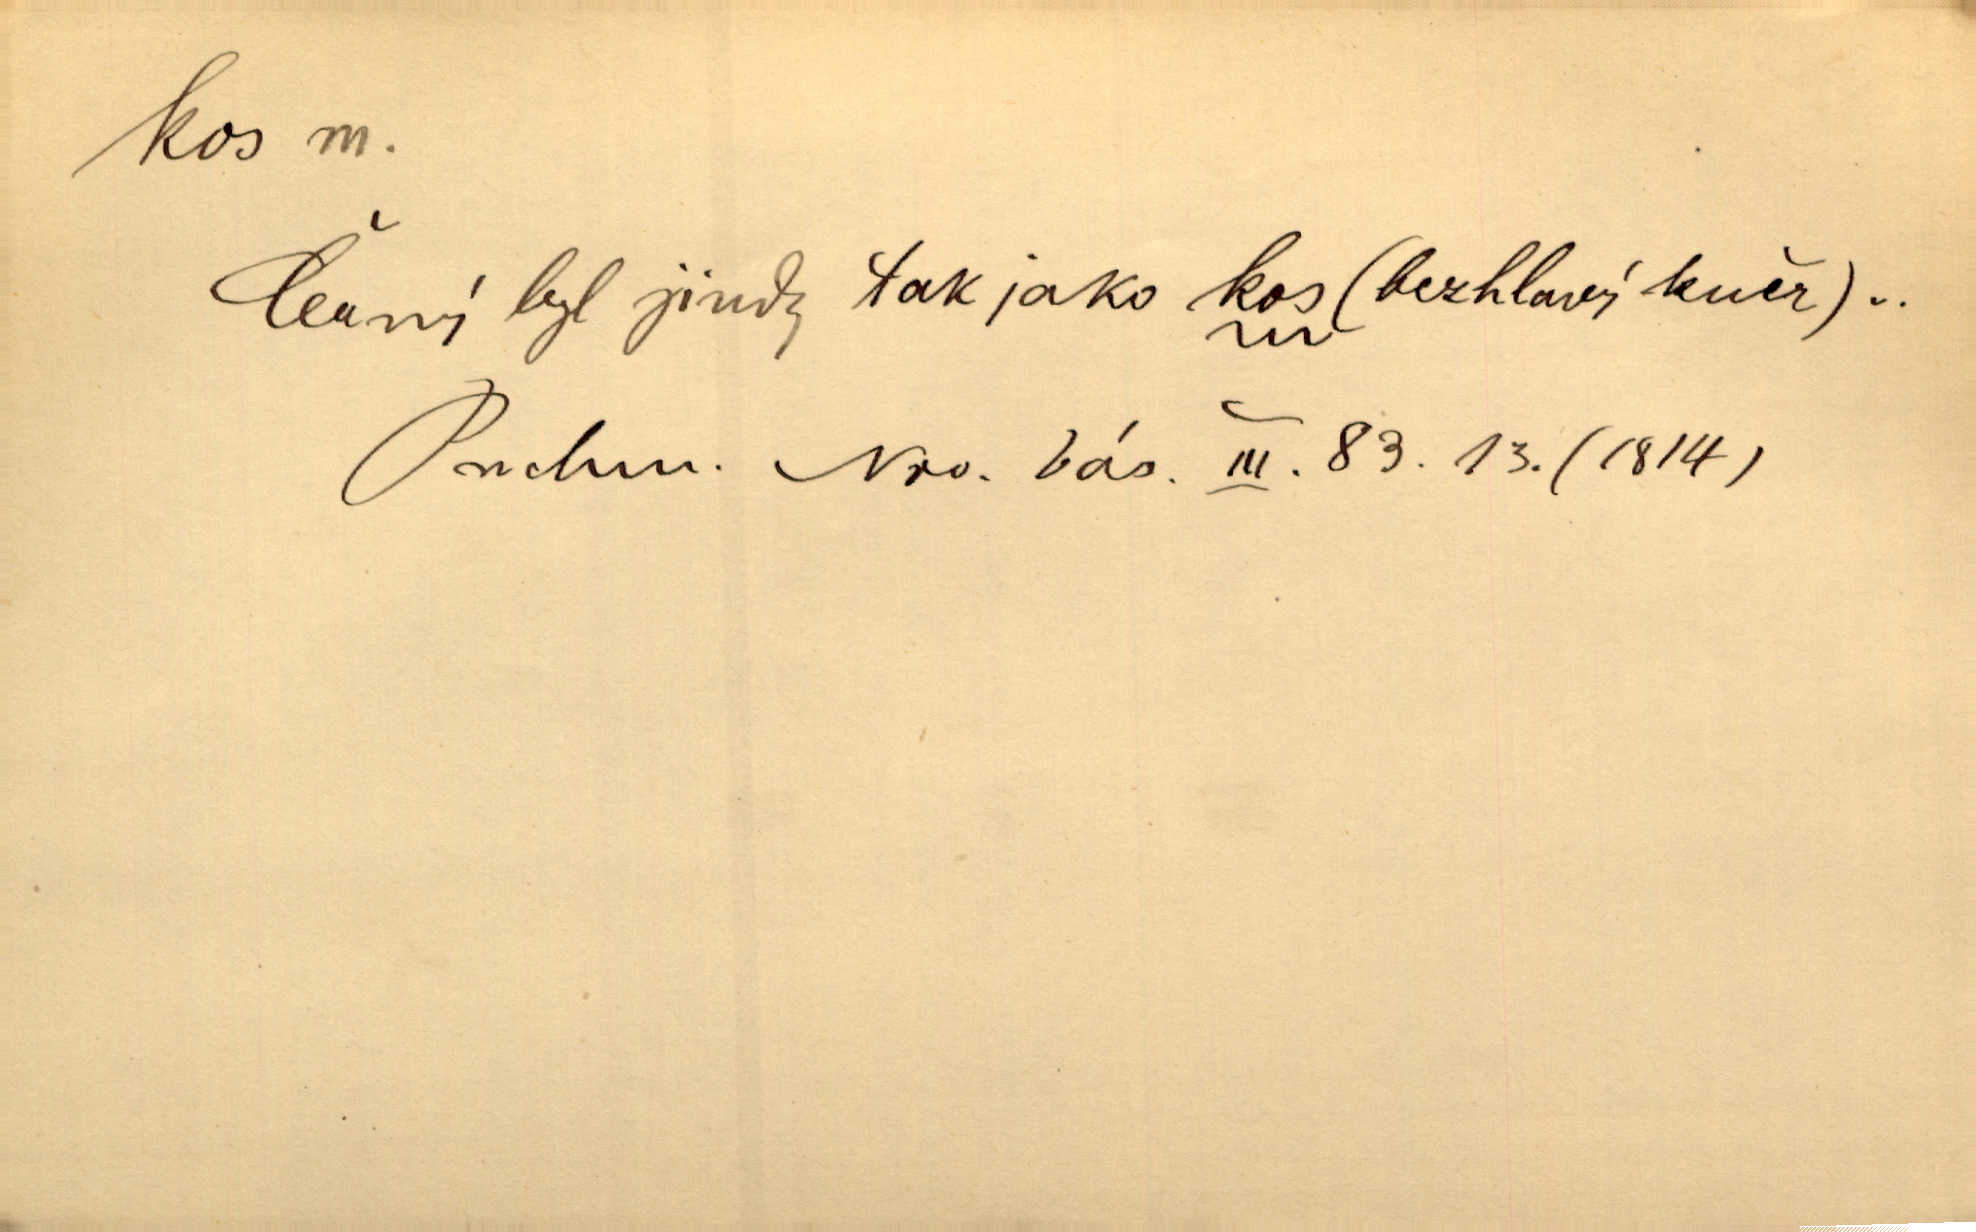 kos m.
Černý byl jindy tak jako kos (bezhlavý kněz)..
Puchm. Nov. bás. III. 83. 13. (1814)